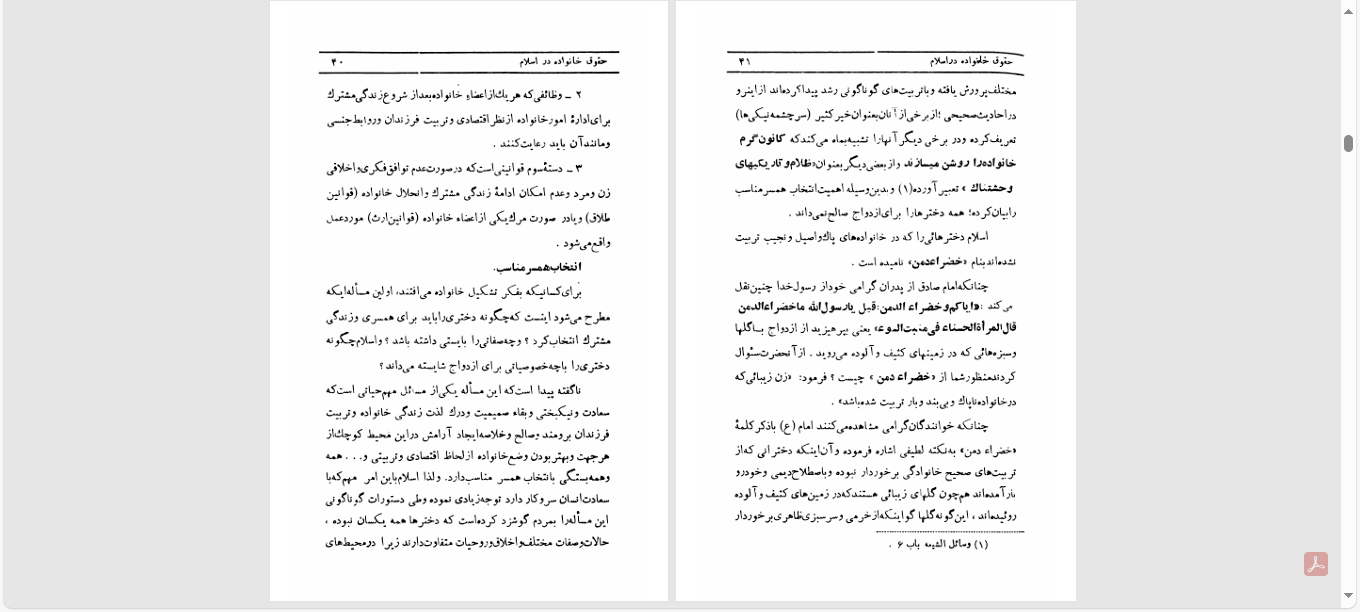 حقوق خانواده در اسلام ۴۰
۲ ــ وظائفی‌که هریك‌ازاعضاء خانواده‌بعداز شروع‌زندگی‌مشترك
برای‌ادارهٔ امورخانواده ازنظراقتصادی وتربیت فرزندان وروابط‌جنسی
ومانندآن باید رعایت‌کنند .
۳ ــ دستهٔ‌سوم قوانینی‌است‌که درصورت‌عدم توافق‌فکری‌واخلاقی
زن ومرد وعدم امکان ادامهٔ زندگی مشترك وانحلال خانواده (قوانین
طلاق) ویادر صورت مرگ‌یکی ازاعضاء خانواده (قوانین‌ارث) موردعمل
واقع‌می‌شود .
انتخاب‌همسرمناسب.
برای‌کسانیکه بفکر تشکیل خانواده می‌افتند، اولین مسأله‌ایکه
مطرح می‌شود اینست که‌چگونه دختری‌راباید برای همسری وزندگی
مشترك انتخاب‌کرد ؟ وچه‌صفاتی‌را بایستی داشته باشد ؟ واسلام‌چگونه
دختری‌را باچه‌خصوصیاتی برای ازدواج شایسته می‌داند؟
ناگفته پیدا است‌که این مسأله یکی‌از مسائل مهم‌حیاتی است‌که
سعادت ونیکبختی وبقاء صمیمیت ودرك لذت زندگی خانواده وتربیت
فرزندان برومند وصالح وخلاصه‌ایجاد آرامش دراین محیط کوچك‌از
هرجهت وبهتربودن وضع‌خانواده ازلحاظ اقتصادی وتربیتی و. . . همه
وهمه‌بستگی بانتخاب همسر مناسب‌دارد. ولذا اسلام‌باین امر مهم‌که‌با
سعادت‌انسان سروکار دارد توجه‌زیادی نموده وطی دستورات گوناگونی
این مسأله‌را بمردم گوشزد کرده‌است که دخترها همه یکسان نبوده ،
حالات‌وصفات مختلف‌واخلاق‌وروحیات متفاوت‌دارند زیرا درمحیط‌های
حقوق خانواده دراسلام ۴۱
مختلف‌پرورش یافته وباتربیت‌های گوناگونی رشد پیداکرده‌اند ازاینرو
دراحادیث‌صحیحی ؛ازبرخی‌ازآنان‌بعنوان‌خیرکثیر (سرچشمه‌نیکی‌ها)
تعریف‌کرده ودر برخی دیگرآنهارا تشبیه‌بماه می‌کندکه کانون‌گرم
خانواده‌را روشن میسازند وازبعضی‌دیگربعنوان«ظلام‌وتاریکیهای
وحشتناك » تعبیرآورده(۱) وبدین‌وسیله اهمیت‌انتخاب همسرمناسب
رابیان‌کرده؛ همه دخترهارا برای‌ازدواج صالح‌نمی‌داند .
اسلام دخترهائی‌را که در خانواده‌های پاك‌واصیل ونجیب تربیت
نشده‌اندبنام «خضراءدمن» نامیده است .
چنانکه‌امام صادق از پدران گرامی خوداز رسول‌خدا چنین‌نقل
می‌کند :«ایاکم‌وخضراء الدمن:قیل یارسول‌الله ماخضراءالدمن
قال‌المرأة‌الحسناء فی‌منبت‌السوء» یعنی بپرهیزید از ازدواج باگلها
وسبزه‌هائی که در زمینهای کثیف وآلوده می‌روید . ازآنحضرت‌سئوال
کردندمنظورشما از «خضراءدمن » چیست ؟ فرمود: «زن زیبائی‌که
درخانواده‌ناپاك وبی‌بند وبار تربیت شده‌باشد» .
چنانکه خوانندگان‌گرامی مشاهده‌می‌کنند امام (ع) باذکرکلمهٔ
«خضراء دمن» به‌نکته لطیفی اشاره فرموده وآن‌اینکه دخترانی که‌از
تربیت‌های صحیح خانوادگی برخوردار نبوده وباصطلاح‌دیمی وخودرو
بارآمده‌اند همچون گلهای زیبائی هستندکه‌در زمین‌های کثیف وآلوده
روئیده‌اند ، این‌گونه‌گلها گواینکه‌ازخرمی وسرسبزی‌ظاهری‌برخوردار
(۱) وسائل الشیعه باب ۶ .